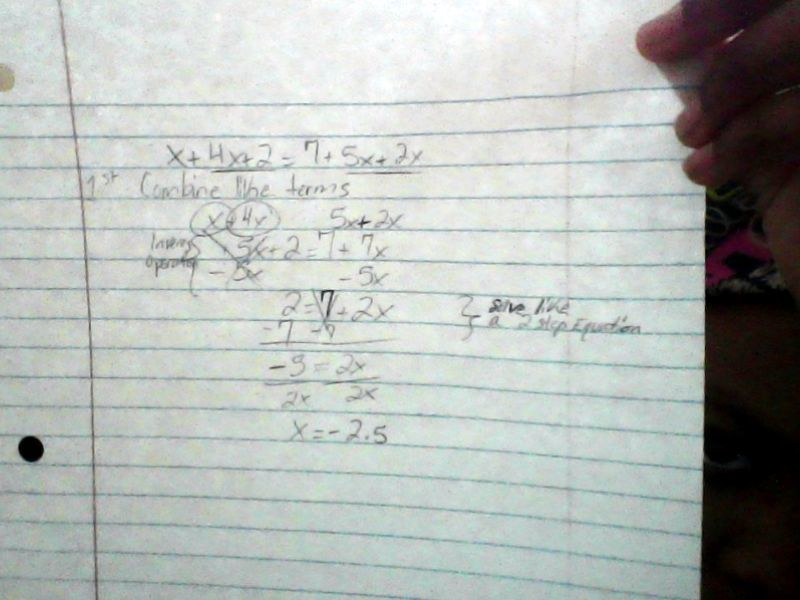 x + 4x + 2 = 7 + 5x + 2x
1st Combine like terms
x + 4x 5x + 2x
Inverse 5x + 2 = 7 + 7x
Operation - 5x - 5x
2 = 7 + 2x } solve like
-7 -7 a 2 step Equation
-5 = 2x
2x 2x
x = -2.5